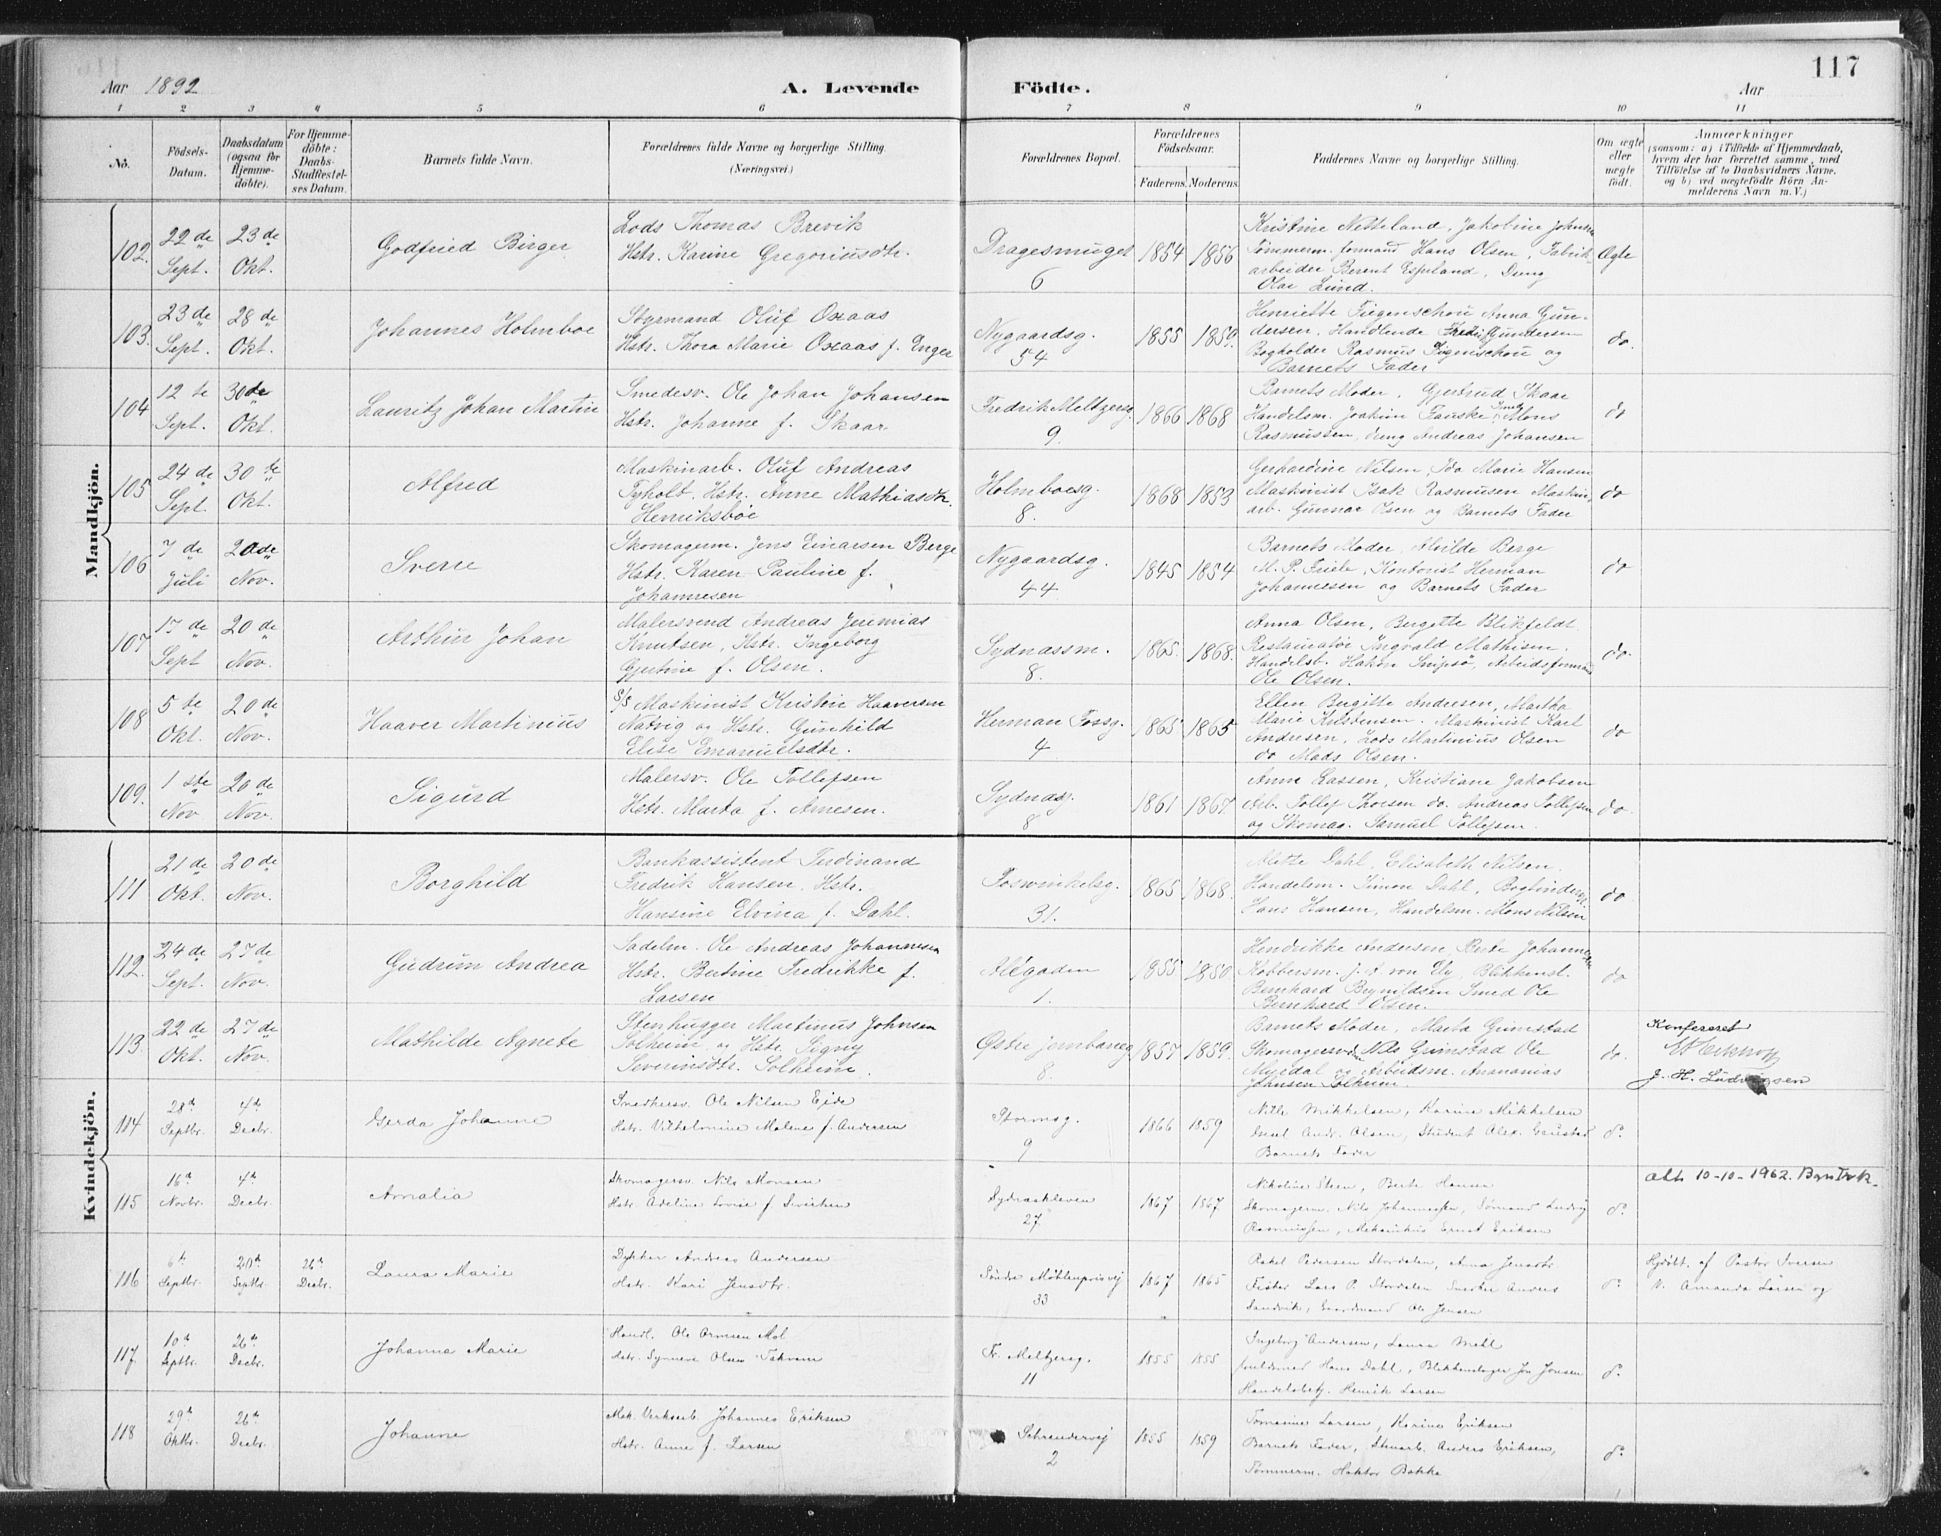 117
Aar 1892 A. Levende Födte. Aar
1 2 3 4 5 6 7 8 9 10 11
No. Födsels-Datum. Daabsdatum (ogsaa for Hjemmedöbte). For Hjemmedöbte: Daabs-Stadfæstelses Datum. Barnets fulde Navn. Forældrenes fulde Navne og borgerlige Stilling. (Næringsvei.) Forældrenes Bopæl. Forældrenes Födselsaar. Faderens. Moderens. Faddernes Navne og borgerlige Stilling. Om ægte eller uægte födt. Anmærkninger (saasom: a) i Tilfælde af Hjemmedaab, hvem der har forrettet samme, med Tilföielse af to Daabsvidners Navne, og b) ved uægtefödte Börn Anmelderens Navn m. V.)
Mandkjön.
102. 22de Sept. 23de Okt. Godfried Birger
Lods Thomas Brevik
Hstr. Karine Gregoriusdtr.
Dragesmuget 6 1854 1856
Kristine Netteland, Jakobine Johnsen
Tömmerm. formand Hans Olsen, Fabrik-
arbeider Berent Espeland, Dreng
Olai Lund.
Ægte
103. 23de Sept. 28de Okt. Johannes Holmboe
Styrmand Oluf Oxaas
Hstr. Thora Marie Oxaas f. Enger
Nygaardsg. 54 1855 1859.
Henriette Figenschou Anna Gun-
dersen, Handlende Fredr. Gundersen
Bogholder Rasmus Figenschou og
Barnets Fader
do.
104 12te Sept. 30de Okt. Lauritz Johan Martin
Smedesv. Ole Johan Johansen
Hstr. Johanne f. Skaar
Fredrik Meltzersg. 9. 1866 1868
Barnets Moder, Gjertrud Skaar
Handelsm. Joakim Fauske, Smed Mons
Rasmussen, dreng Andreas Johansen
do
105 24de Sept. 30te Okt. Alfred
Maskinarb. Oluf Andreas
Tyholt. Hstr. Anne Mathiasdtr.
Henriksbøe
Holmboesg. 8. 1868 1853
Gerhardine Nilsen, Ida Marie Hansen
Maskinist Isak Rasmusen Maskin-
arb. Gunnar Olsen og Barnets Fader
do
106 7de Juli 20de Nov. Sverre
Skomagerm. Jens Einarsen Berge
Hstr. Karen Pauline f.
Johannesen
Nygaardsg. 44 1845 1854
Barnets Moder, Alvilde Berge
M. P. Friele, Kontorist Herman
Johannesen og Barnets Fader
do
107 17de Sept 20de Nov. Arthur Johan
Malersvend Andreas Jeremias
Knutsen, Hstr. Ingeborg
Gjertine f. Olsen.
Sydnæssm. 8. 1865. 1868.
Anna Olsen, Bergitte Blikfeldt
Restauratör Ingvald Mathisen.
Handelsb. Hakon Snipsö, Arbeidsformand
Ole Olsen.
do.
108 5te Okt. 20de Nov. Haaver Martinius
S/S Maskinist Kristin Haaversen
Natvig og Hstr. Gunhild
Elise Emanuelsdtr.
Herman Fossg. 4 1865 1865
Ellen Birgitte Andresen, Martha
Marie Kristensen. Maskinist Karl
Andresen, Lods Martinius Olsen
do Mads Olsen.
do
109. 1ste Nov 20de Nov. Sigurd
Malersv. Ole Tollefsen
Hstr. Marta f. Arnesen.
Sydnæsg. 8 1861 1867.
Anne Lassen, Kristiane Jakobsen
Arb. Tollef Thorsen do. Andreas Tollefsen
og Skomag. Samuel Tollefsen.
do
Kvindekjön.
111 21de Okt. 20de Nov. Borghild
Bankassistent Ferdinand
Fredrik Hansen. Hstr.
Hansine Elvina f. Dahl.
Foswinkelsg. 31. 1865 1868.
Mette Dahl, Elisabeth Nilsen
Handelsm. Simon Dahl, Bogbinder
Hans Hansen, Handelsm. Mons Nilsen
do
112. 24de Sept. 27de Nov. Gudrun Andrea
Sadelm. Ole Andreas Johannesen
Hstr. Bertine Fredrikke f.
Larsen
Allégaden 1. 1855 1850
Hendrikke Andersen, Berte Johannesen
Kobbersm. J. A. von Ely, Blikkensl.
Bernhard Brynildsen Smed Ole
Bernhard Olsen.
do
113. 22de Okt. 27de Nov. Mathilde Agnete
Stenhugger Martinus Johnsen
Solheim og Hstr. Signy
Severinsdtr. Solheim.
Østre jernbaneg. 8. 1857 1859.
Barnets Moder, Marta Grimstad
Skomagersvd. Nils Grimstad Ole
Myrdal og Arbeidsm. Ananias
Johnsen Solheim.
do.
Konfereret
J. H. Ludvigsen
114 28de Septbr. 4de Decbr. Gerda Johanne
Snedkersv. Ole Nilsen Eide
Hstr. Vilhelmine Malene f. Andersen
Stormsg. 9 1866 1859
Nille Mikkelsen, Karine Mikkelsen
Andr. Olsen, Student Alex. Grimstad
Barnets Fader
do
115 16de Novbr. 4de Decbr. Amalia
Skomagersv. Nils Monsen
Hstr. Adeline Lovise f.
Sydnæskleven 27. 1867 1867
Nikoline Steen, Berte Hansen
Skomagerm. Nils Johannessen, Sømand Ludvig
Rasmussen, Mekanikus Ernst Eriksen
do
att. 10-10-1962.
116 6te Septbr. 20de Septbr. 26de Decbr. Laura Marie
Dykker Andreas Andersen
Hstr. Kari Jensdtr.
Søndre Møhlenprisvej 33 1867 1865
Rakel Pedersen Stordalen, Anna Jensdtr
Fisker Lars P. Stordalen Snedker Anders
Sandvik, Ole Jensen
do
Hjdöbt. af Pastor Iversen
V. Amanda Larsen og
117. 10de Septbr. 26de Decbr. Johanna Marie
Handl. Ole Ormsen Møl
Hstr. Synneve Olsen Takvam
Fr. Meltzersg. 11 1855 1855
Ingeborg Andersen, Laura Mehl
Hans Dahl, Blikkenslager Jon Jonsen
Handelsbetj. Henrik Larsen
do
118 29de Oktbr. 26de Decbr. Johanne
Mek. Verksarb. Johannes Eriksen
Hstr. Anne f. Larsen
Schrøndersvej 2 1855 1859
Tomasine Larsen, Karine Eriksen
Barnets Fader, Stenarb. Anders Eriksen,
Tömmerm. Haktor Bakke
do